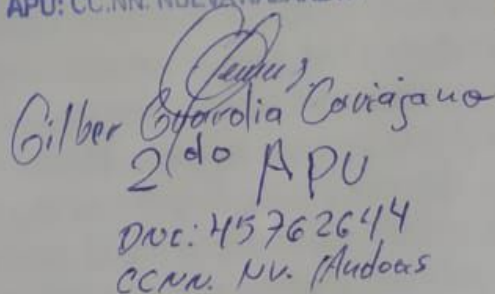 APU: CC.NN. NUEVA
Gilber Guardia Cariajano
2do APU
DNI: 45762644
CCNN. NV. Andoas